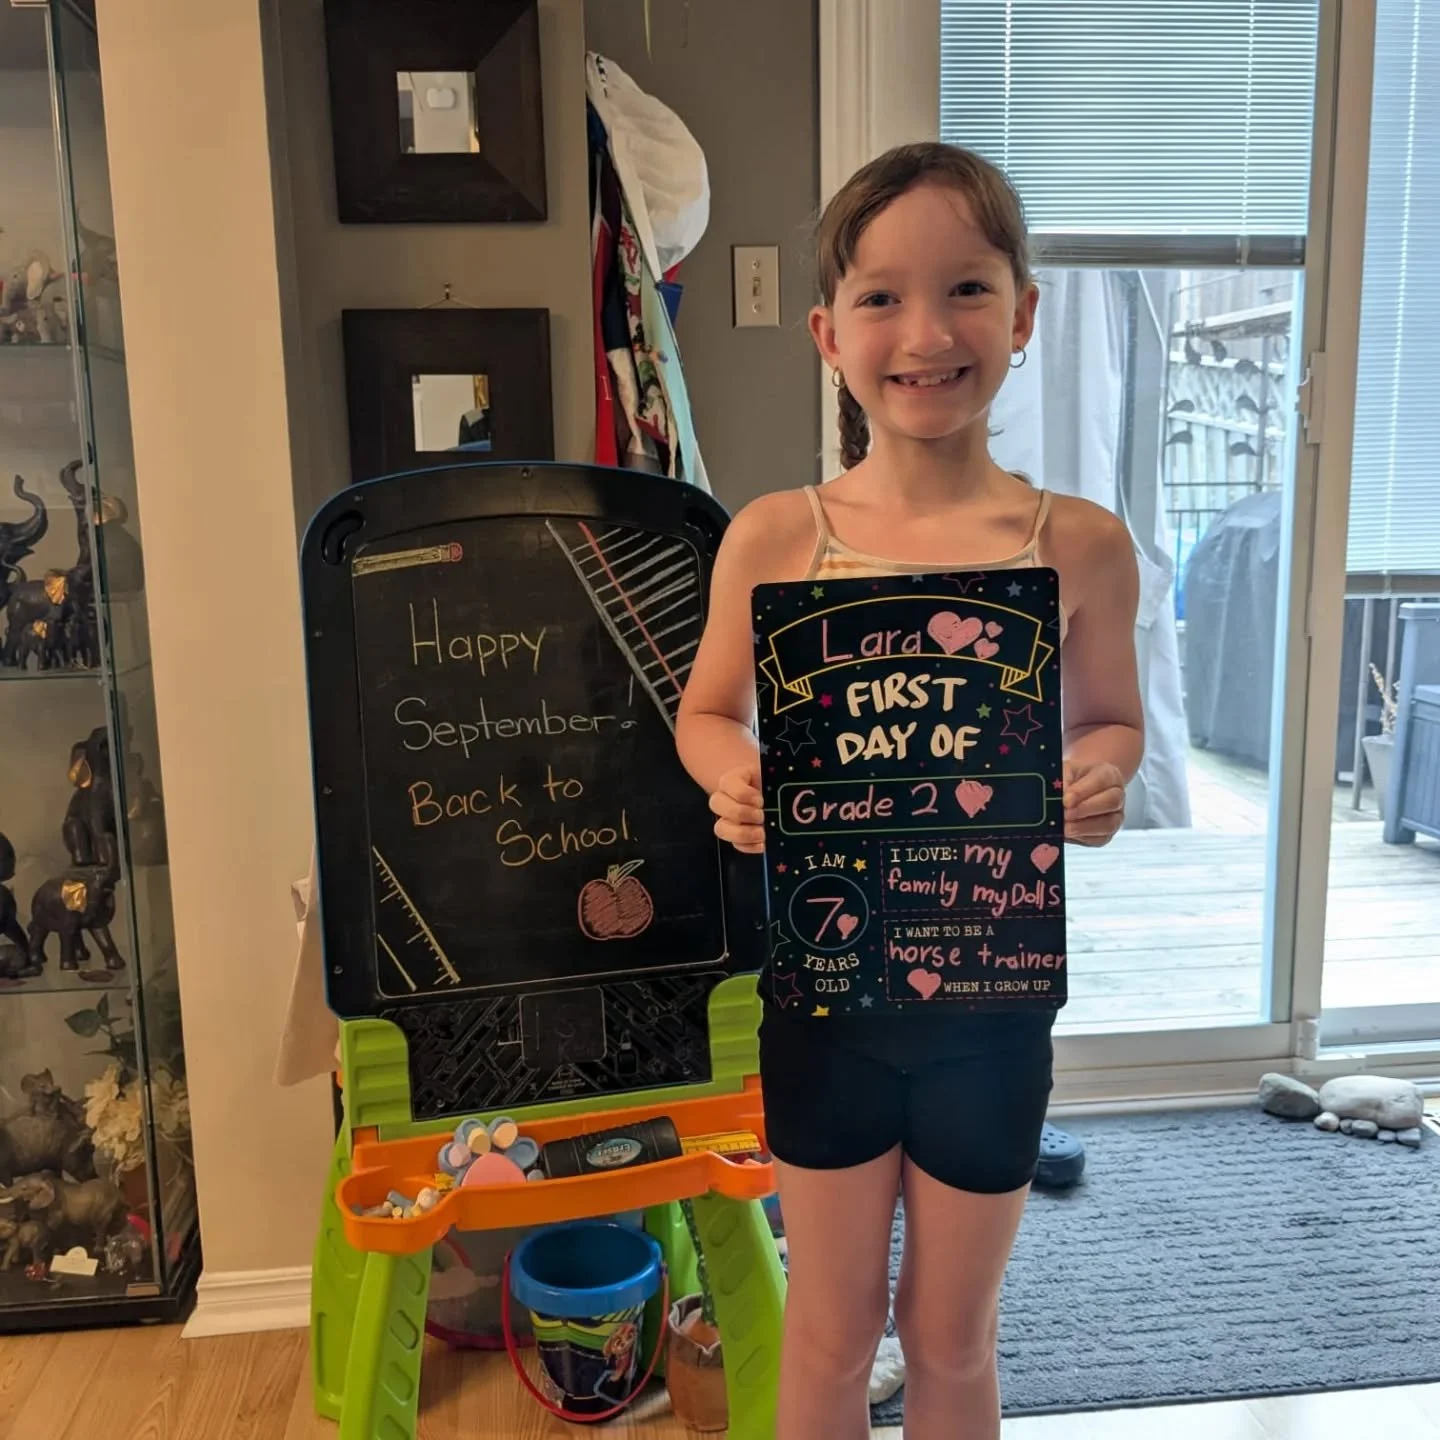 Happy
September!
Back to
School.
Lara
FIRST
DAY OF
Grade 2
I AM
7
YEARS
OLD
I LOVE: my
family my Dolls
I WANT TO BE A
horse trainer
WHEN I GROW UP